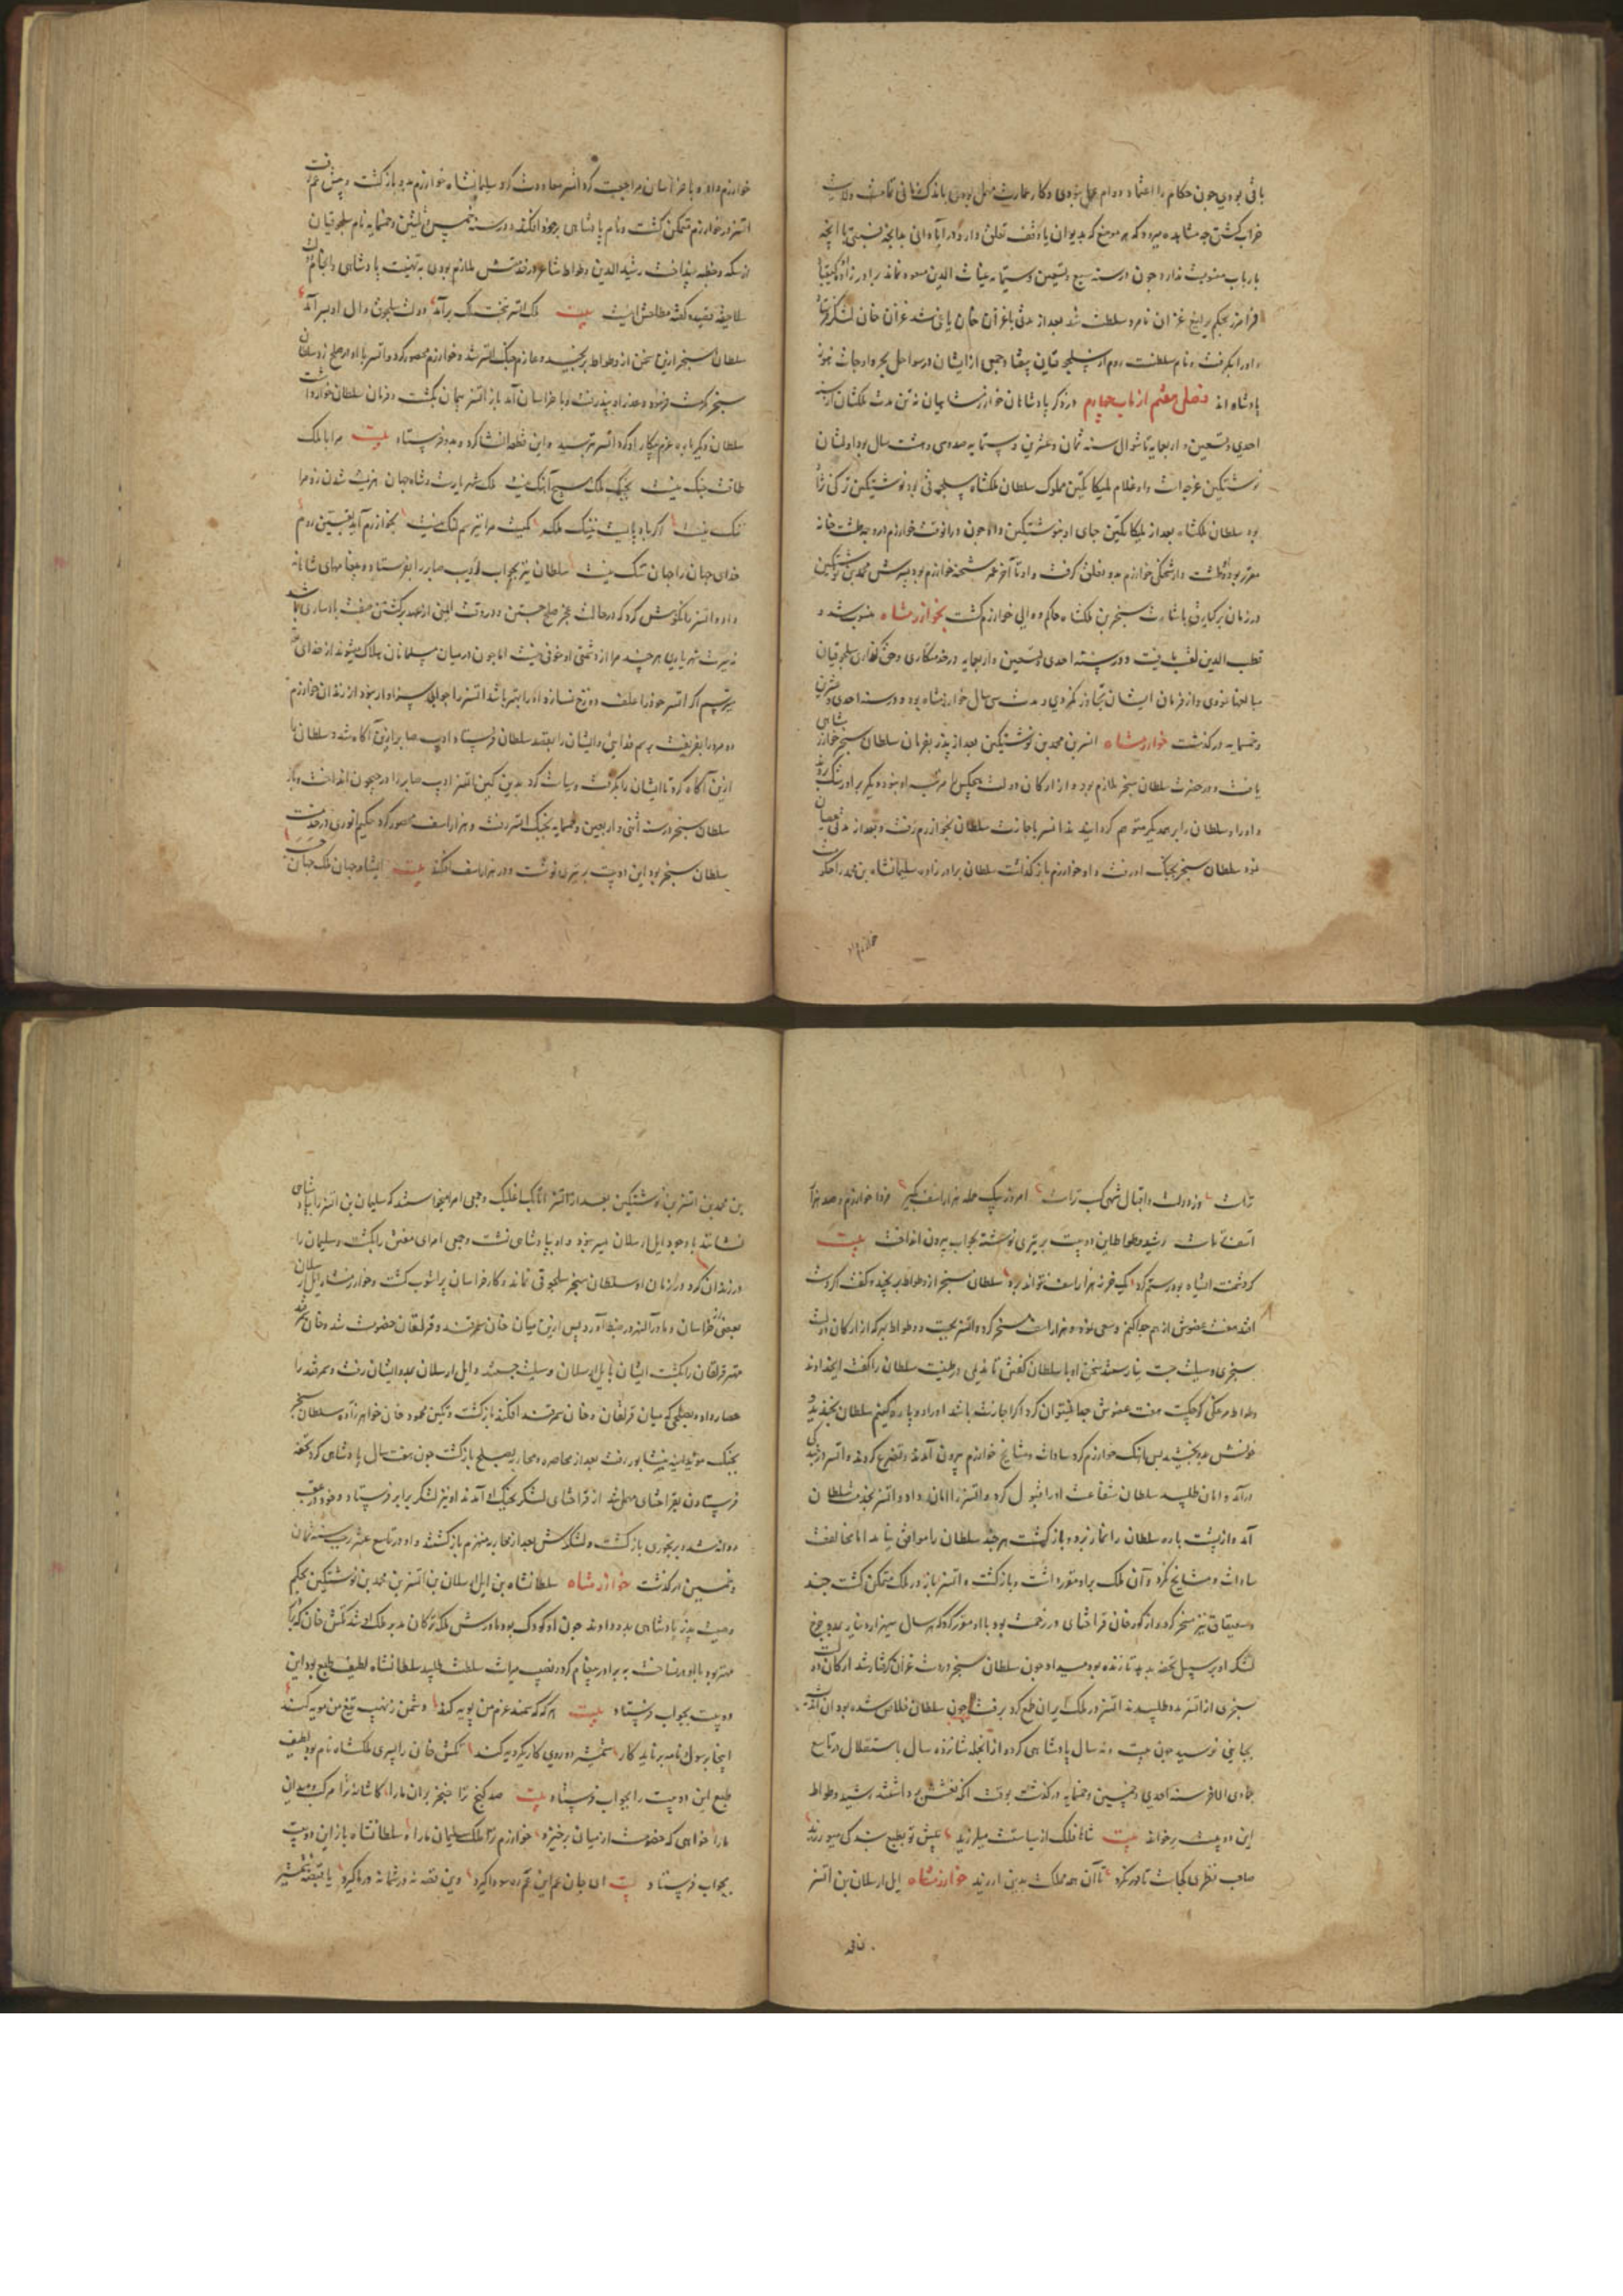 باقی بودی چون حکام را اعتماد دوام عمل نبودی و کار عمارت مهمل بودی باندک زمانی تمامت ولایت
خراب کشتی چه مشاهده میرود که هر موضع که بدیوان یا وقف تعلق دارد در آبادانی بدانچه نسبتی با آنچه
بارباب منسوبست ندارد چون در سنه سبع و تسعین و ستمایه غیاث الدین مسعود نماند برادر زاده کیقباد
فرامرز بحکم یرلیغ غزان نامزد سلطنت شد بعد از مدتی با غزان خان یاغی شد غزان خان لشکر فرستاد
و او را بکرفت و نام سلطنت روم از سلجوقیان بیفتاد و جمعی از ایشان در سواحل بحر و اوجات هنوز
پادشاه اند فصل هفتم از باب چهارم در ذکر پادشاهان خوارزمشاهیان نه تن مدت ملکشان از سنه
احدی و تسعین و اربعمایه تا شوال سنه ثمان و عشرین و ستمایه صد و سی و هشت سال بود اولشان
نوشتکین غرجه است و او غلام بلیکا تکین مملوک سلطان ملکشاه سلجوقی بود نوشتکین ترکی نژاد
بود سلطان ملکشاه بعد از بلیکا تکین جای او بنوشتکین داد چون در آنوقت خوارزم در وجه طشت خانه
مقرر بود و طشت دار شحنکی خوارزم بدو تعلق کرفت و او تا آخر عمر شحنه خوارزم بود پسرش محمد بن نوشتکین
در زمان برکیارق باشارت سنجر بن ملکشاه حاکم و والی خوارزم کشت بخوارزمشاه منسوب شد و
قطب الدین لقب یافت و در سنه احدی و تسعین و اربعمایه در خدمتکاری و حق کذاری سلجوقیان
مبالغها نمودی و از فرمان ایشان تجاوز نکردی و مدت سی سال خوارزمشاه بود و در سنه احدی و عشرین
و خمسمایه درکذشت خوارزمشاه اتسز بن محمد بن نوشتکین بعد از پدر بفرمان سلطان سنجر خوارزمشاهی
یافت و در حضرت سلطان سنجر ملازم بود و از ارکان دولت هیچکس را مرتبه او نبود دیکر برادر شک بردند
و او را و سلطان را بر همدیکر متوهم کردانیدند اتسز باجازت سلطان بخوارزم رفت و بعد از مدتی عصیان
نمود سلطان سنجر بجنک او رفت و او خوارزم باز کذاشت سلطان برادرزاده سلیمانشاه بن محمد را حکومت
خوارزم داد و با خراسان مراجعت کرد اتسز معاودت کرد سلیمانشاه خوارزم بدو باز کشت و پیش عم رفت
اتسز در خوارزم متمکن کشت و نام پادشاهی بر خود افکند و در سنه خمس و ثلثین و خمسمایه نام سلجوقیان
از سکه و خطبه بینداخت رشید الدین وطواط شاعر در خدمتش ملازم بودی به تهنیت پادشاهی
قصیده کفته مطلعش اینست بیت ملک اتسز بتخت ملک برآمد دولت سلجوق و آل او بسر آمد
سلطان سنجر ازین سخن از وطواط برنجید و عازم جنک اتسز شد و خوارزم محصور کرد و اتسز با او در صلح زد سلطان
سنجر
سلطان دیکر باره عزم پیکار او کرد اتسز بترسید و این قطعه انشا کرد و بدو فرستاد بیت مرا با ملک
طاقت جنک نیست بجنک ملک هیچ آهنک نیست ملک شهریارست و شاه جهان هزیمت شدن زو مرا
ننک نیست اکر باد پایست خنک ملک کمیت مرا نیز هم لنک نیست بخوارزم آید بسقسین روم
خدای جهان را جهان تنک نیست سلطان نیز بجواب ادیب صابر را بفرستاد و پیغامهای شاهانه
داد و اتسز را نکوهش کرد که در حالت عجز صلح جستن و در وقت ایمن از عهد برکشتن
نه سیرت شهریاری هرچند مرا از دشمنی او خوفی نیست اما چون در میان مسلمانان هلاک میشوند از خدای
میترسم اکر اتسز خود را علف دوزخ نسازد او را بهتر باشد اتسز را جوابی سزاوار نبود از رندان خوارزم
دو مرد را بفریفت برسم فدایی و ایشان را بقصد سلطان فرستاد ادیب صابر ازین آکاه شد و سلطان را
ازین آکاه کرد تا ایشان را بکرفت و سیاست کرد بدین کین اتسز ادیب صابر را در جیحون انداخت و باز
سلطان سنجر در سنه اثنی و اربعین و خمسمایه بجنک اتسز رفت و هزار اسف محصور کرد حکیم انوری در خدمت
سلطان سنجر بود این دو بیت بر تیری نوشت و در هزار اسف افکند بیت ای شاه جهان ملک جهان حسب
تراست وز دولت و اقبال شهی کسب تراست امروز بیک حمله هزار اسف بکیر فردا خوارزم و صد هزار
اسف تراست رشید وطواط این دو بیت بر تیری نوشته بجواب بیرون انداخت بیت
کر دشمنت ای شاه بود رستم کرد یک خر ز هزار اسف نتواند برد سلطان سنجر از وطواط برنجید و کفت اکر بدست
افتد هفت عضوش از هم جدا کنم و سعی نمود و هزار اسف مسخر کرد و اتسز بجست و وطواط بهر که از ارکان دولت
سنجری وسیلت جست یارستند سخن او با سلطان کفتن تا بدیلی در طیبت سلطان را کفت ای خداوند
وطواط مرغکی کوچکست هفت عضوش جدا نمیتوان کرد اکر اجازت باشد او را دو پاره کنیم سلطان بخندید و
خونش بدو بخشید پس آهنک خوارزم کرد سادات و مشایخ خوارزم بیرون آمدند و تضرع کردند و اتسز در بندکی
درآمد و امان طلبید سلطان شفاعت او را قبول کرد و اتسز را امان داد و اتسز بخدمت سلطان
آمد و از پشت باره سلطان را نماز برد و باز کشت هرچند سلطان را موافق نیامد اما مخالفت
سادات و مشایخ نکرد و آن ملک برو مقرر داشت و باز کشت و اتسز باز در ملک متمکن کشت جند
و سقناق نیز مسخر کرد و از کورخان قراختای در زحمت بود با او مقرر کرد که هر سال سی هزار دینار
لشکر او بر سبیل تحفه بدهد تا زنده بود میداد چون سلطان سنجر در دست غزان کرفتار شد ارکان دولت
سنجری از اتسز مدد طلبیدند اتسز در ملک ایران طمع کرد برفت چون سلطان خلاص شده بود آن اندیشه
بجایی نرسید چون بیست و نه سال پادشاهی کرد و از آنجمله شانزده سال باستقلال در تاسع
جمادی الاخر سنه احدی و خمسین و خمسمایه درکذشت بوقت آنکه نعشش برداشتند رشید وطواط
این دو بیت بر خواند بیت شاها فلک از سیاستت میلرزید پیش تو بطبع بندکی میورزید
صاحب نظری کجاست تا درنکرد تا آن همه مملکت بدین ارزید خوارزمشاه ایل ارسلان بن اتسز
بن محمد بن اتسز بن نوشتکین بعد از اتسز اتابک اغلبک و جمعی امرا میخواستند که سلیمان بن اتسز را بپادشاهی
نشانند با وجود ایل ارسلان میسر نبود و او بپادشاهی نشست و جمعی امرای مفتن را بکشت و سلیمان را
در زندان کرد در زمان او سلطان سنجر سلجوقی نماند و کار خراسان پر آشوب کشت و خوارزمشاه ایل ارسلان
بعضی از خراسان و ماورا النهر در ضبط آورد پس ازین میان خان سمرقند و قرلقان خصومت شد و خان سمرقند
مهتر قرلقان را بکشت ایشان بایل ارسلان وسیلت جستند و ایل ارسلان بمدد ایشان رفت و سمرقند را
حصار داد و بصلحی که میان قرلقان و خان سمرقند افکند باز کشت و بکین محمود خان خواهرزاده سلطان سنجر
بجنک موید به نیشابور رفت بعد از محاصره و محاربه بصلح باز کشت چون هفت سال پادشاهی کرد تحفه
فرستادن بقراختای مهمل شد از قراختای لشکر بجنک او آمدند او نیز لشکر برابر فرستاد و خود در عقب
روانه شد و برنجوری باز کشت و لشکرش بعد از محاربه منهزم باز کشتند و او در تاسع عشر رجب سنه ثمان
و خمسین درکذشت خوارزمشاه سلطانشاه بن ایل ارسلان بن اتسز بن محمد بن نوشتکین بحکم
وصیت پدر پادشاهی بدو دادند چون او کودک بود مادرش ملکه ترکان مدبر ملک او شد تکش خان که برادر
مهتر بود با او در نساخت به برادر پیغام کرد و نصیب میراث سلطنت طلبید سلطانشاه لطیف طبع بود این
دو بیت بجواب فرستاد بیت هر که که سمند عزم من پویه کند دشمن ز نهیب تیغ من مویه کند
اینجا برسول و نامه برناید کار شمشیر دو رویه کار یکرویه کند تکش خان را پسری ملکشاه نام بود لطیف
طبع این دو بیت را بجواب فرستاد بیت صد کنج ترا خنجر بران ما را کاشانه ترا مرکب و میدان
ما را خواهی که خصومت از میان برخیزد خوارزم ترا ملک خراسان ما را سلطانشاه باز این دو بیت
بجواب فرستاد بیت ای جان عم این غم ره سودا کیرد وین قصه نه در شما نه در ما کیرد تا قبضه شمشیر